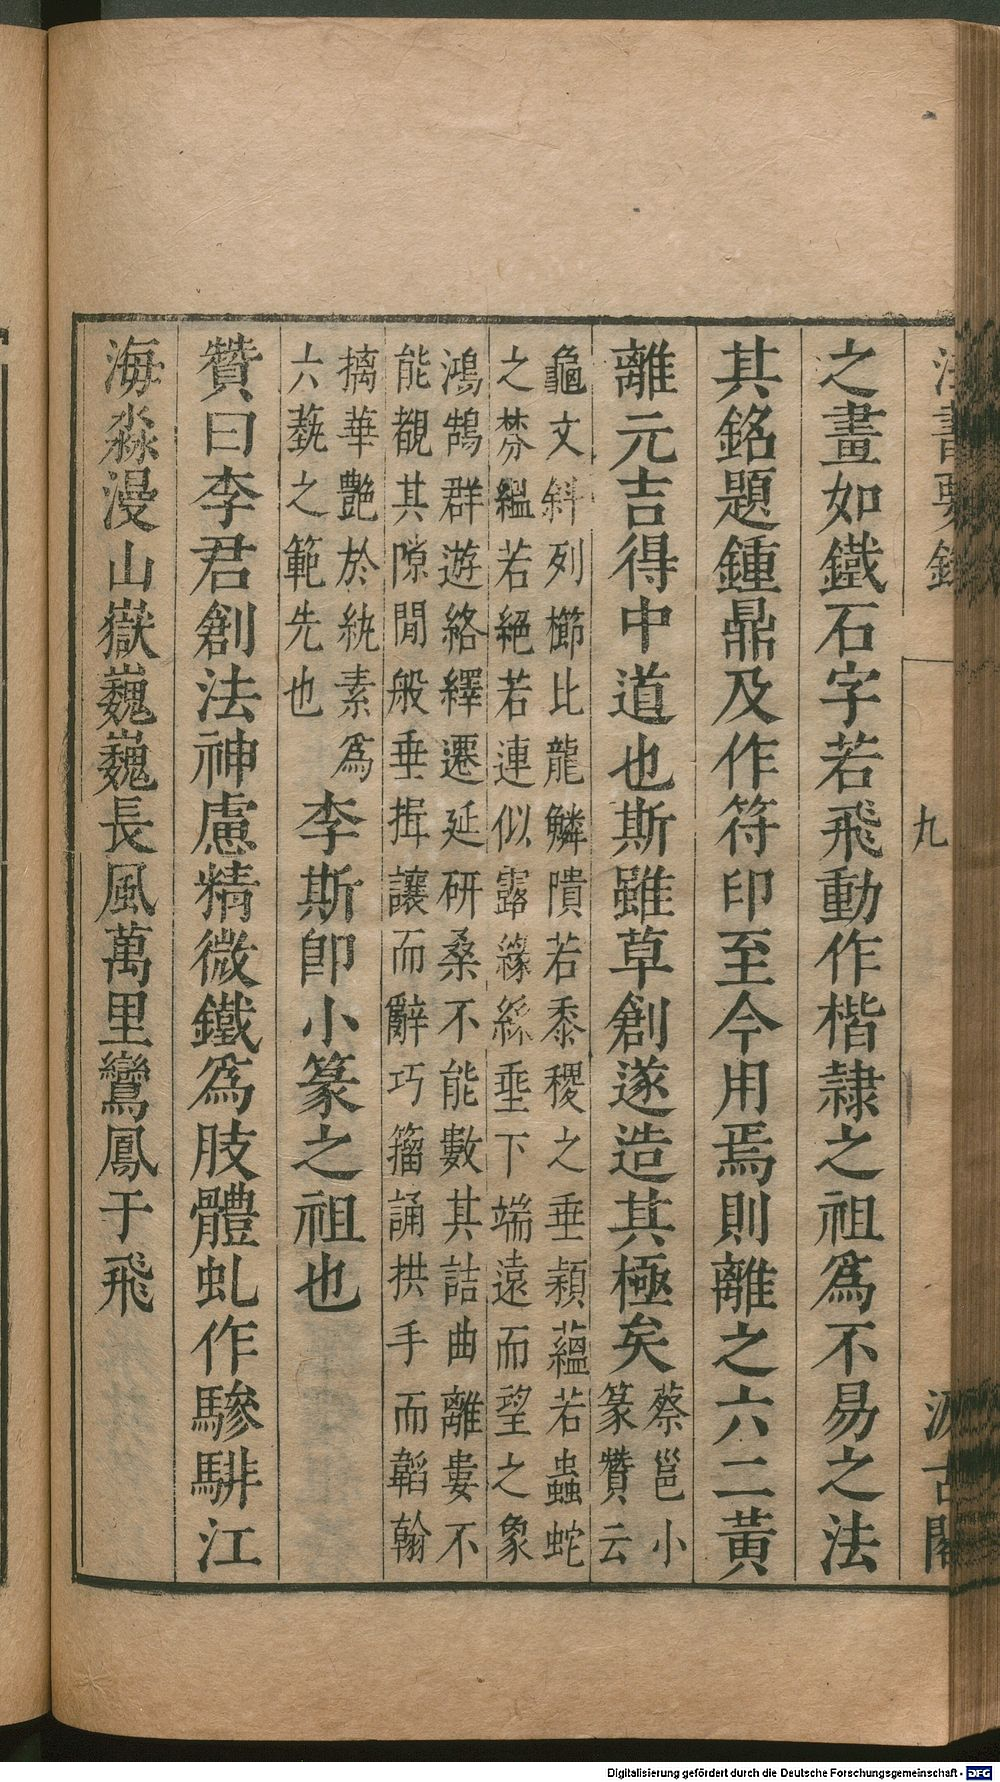 法書要錄
九
汲古閣
之畫如鐵石字若飛動作楷隷之祖爲不易之法
其銘題鍾鼎及作符印至今用焉則離之六二黃
離元吉得中道也斯雖草創遂造其極矣
蔡邕小
篆贊云
龜文斜列櫛比龍鱗隤若黍稷之垂穎蘊若蟲蛇
之棼縕若絕若連似露緣絲垂下端遠而望之象
鴻鵠群遊絡繹遷延研桑不能數其詰曲離婁不
能覩其隙閒般垂揖讓而辭巧籀誦拱手而韜翰
摛華艷於紈素爲
六藝之範先也
李斯卽小篆之祖也
贊曰李君創法神慮精微鐵爲肢體虬作驂騑江
海淼漫山嶽巍巍長風萬里鸞鳳于飛
Digitalisierung gefördert durch die Deutsche Forschungsgemeinschaft - DFG